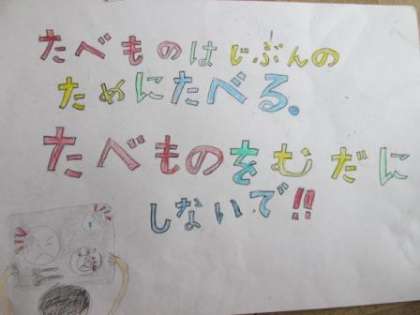 たべものはじぶんの
ためにたべる。
たべものをむだに
しないで!!